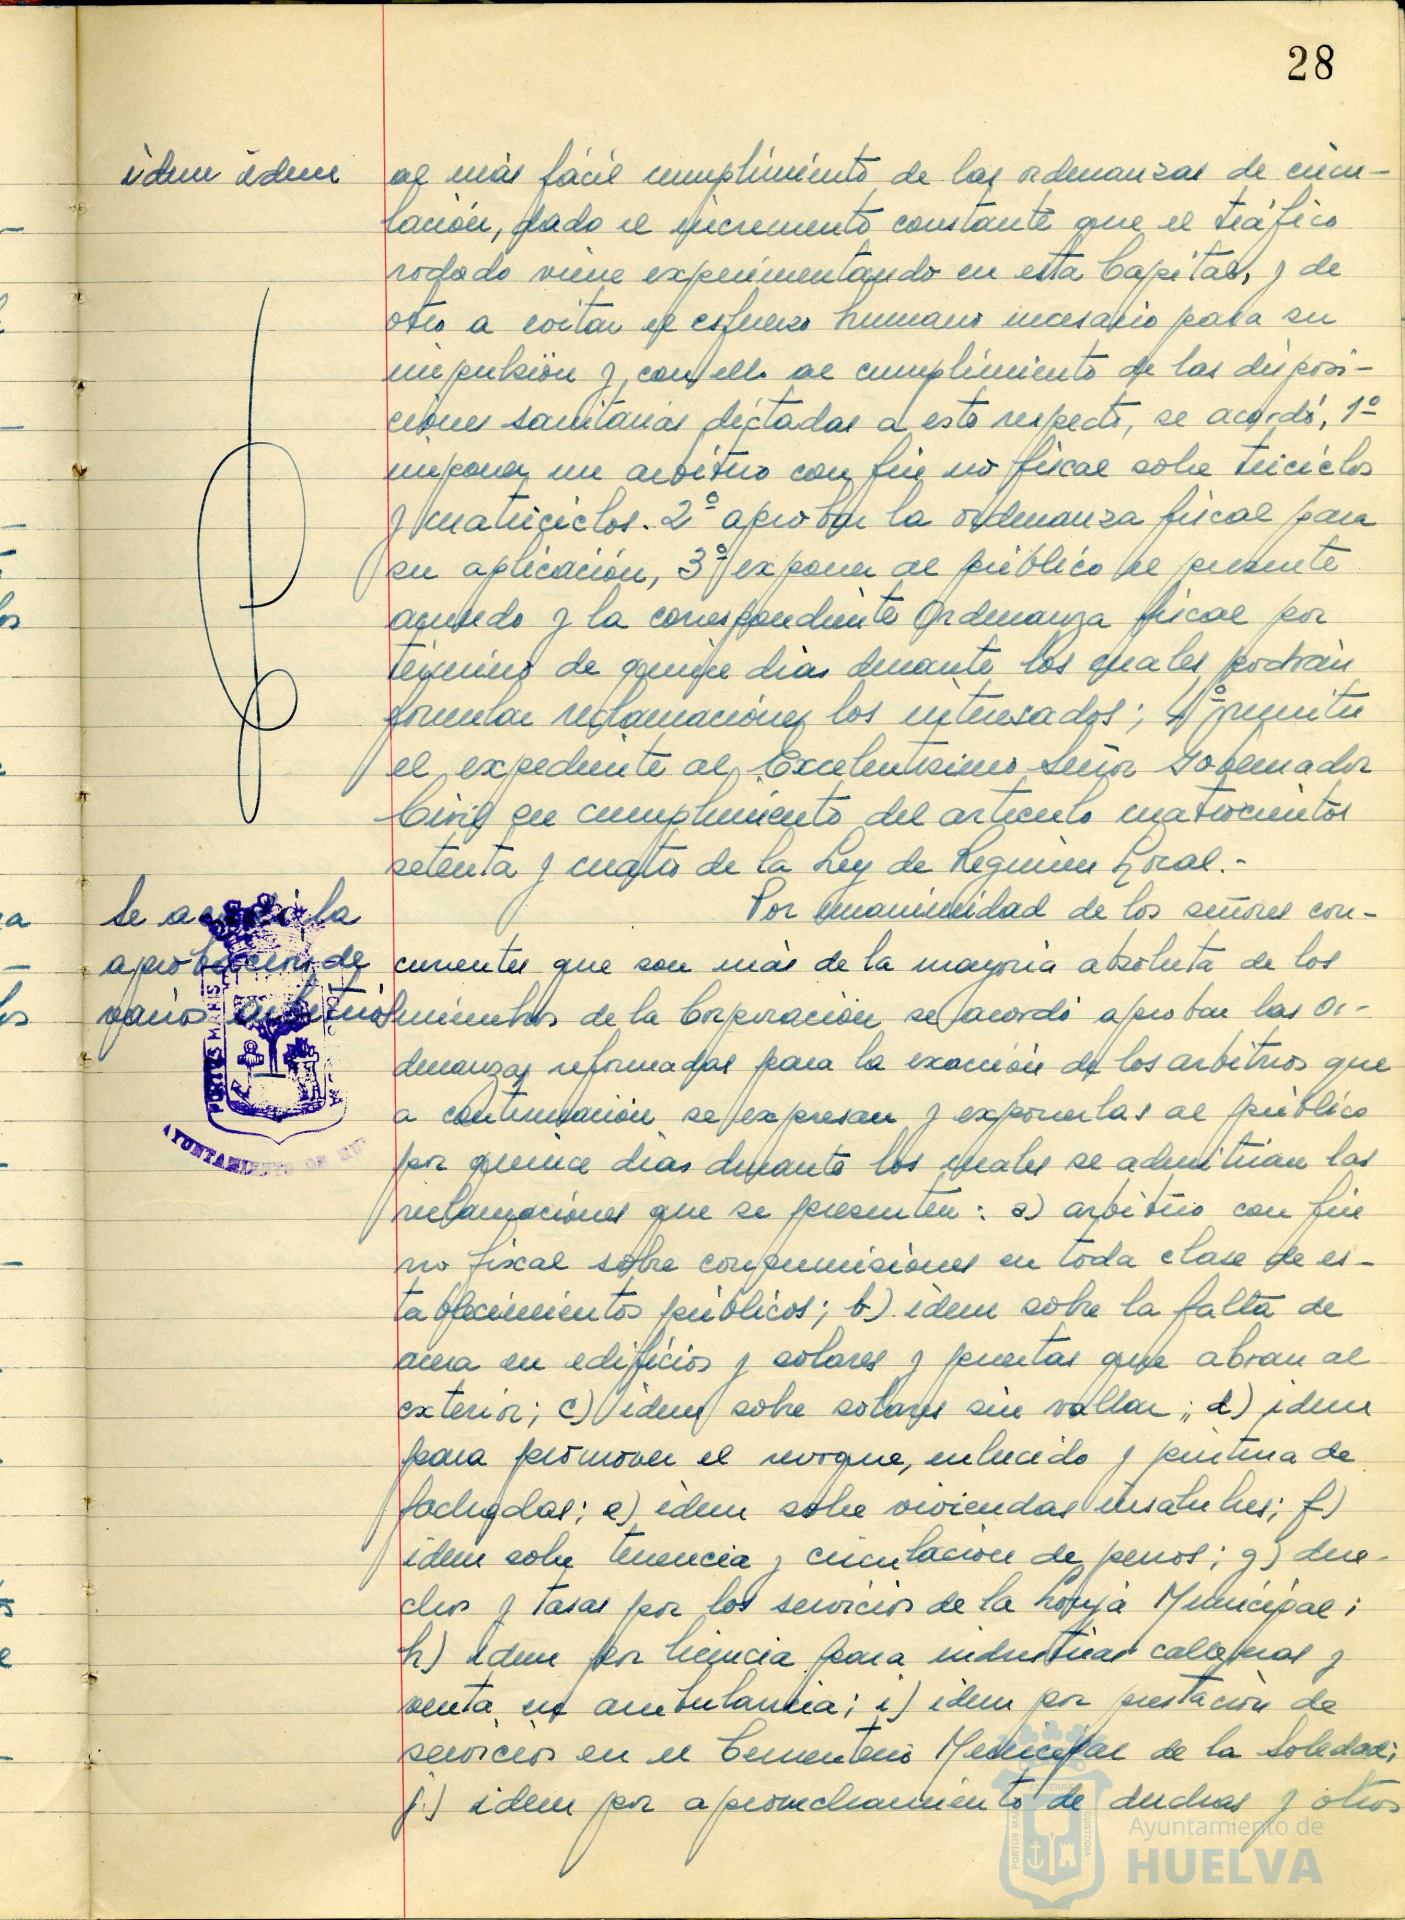 28
idem idem
al más fácil cumplimiento de las ordenanzas de circu-
lación, dado el incremento constante que el tráfico
rodado viene experimentando en esta Capital, y de
otro a evitar el esfuerzo humano necesario para su
impulsión y con ello al cumplimiento de las disposi-
ciones sanitarias dictadas a este respecto, se acordó, 1º
imponer un arbitrio con fin no fiscal sobre triciclos
y matriciclos. 2º aprobar la ordenanza fiscal para
su aplicación, 3º exponer al público el presente
acuerdo y la correspondiente Ordenanza fiscal por
término de quince dias durante los quales podrán
formular reclamaciones los interesados; 4º remitir
el expediente al Excelentisimo Señor Gobernador
Civil en cumplimiento del articulo cuatrocientos
setenta y cuatro de la Ley de Regimen Local.-
Se acordó la
aprobación de
varios arbitrios
Por unanimidad de los señores con-
currentes que son más de la mayoria absoluta de los
miembros de la Corporación se acordó aprobar las or-
denanzas reformadas para la exacción de los arbitrios que
a continuación se expresan y exponerlas al público
por quince dias durante los cuales se admitirian las
reclamaciones que se presenten: a) arbitrio con fin
no fiscal sobre consumisiones en toda clase de es-
tablecimientos públicos; b) idem sobre la falta de
acera en edificios y solares y puertas que abran al
exterior; c) idem sobre solares sin vallar; d) idem
para promover el revoque, enlucido y pintura de
fachadas; e) idem sobre viviendas insalubres; f)
idem sobre tenencia y circulacion de perros; g) dere-
chos y tasas por los servicios de la Lonja Municipal;
h) idem por licencia para industrias callejeras y
venta en ambulancia; i) idem por prestación de
servicios en el Cementerio Municipal de la Soledad;
j) idem por aprovechamiento de duchas y otros
PORTUS MARIS
AYUNTAMIENTO DE HU
PORTUS MARIS
ET TERRAE
CUSTODIA
Ayuntamiento de
HUELVA